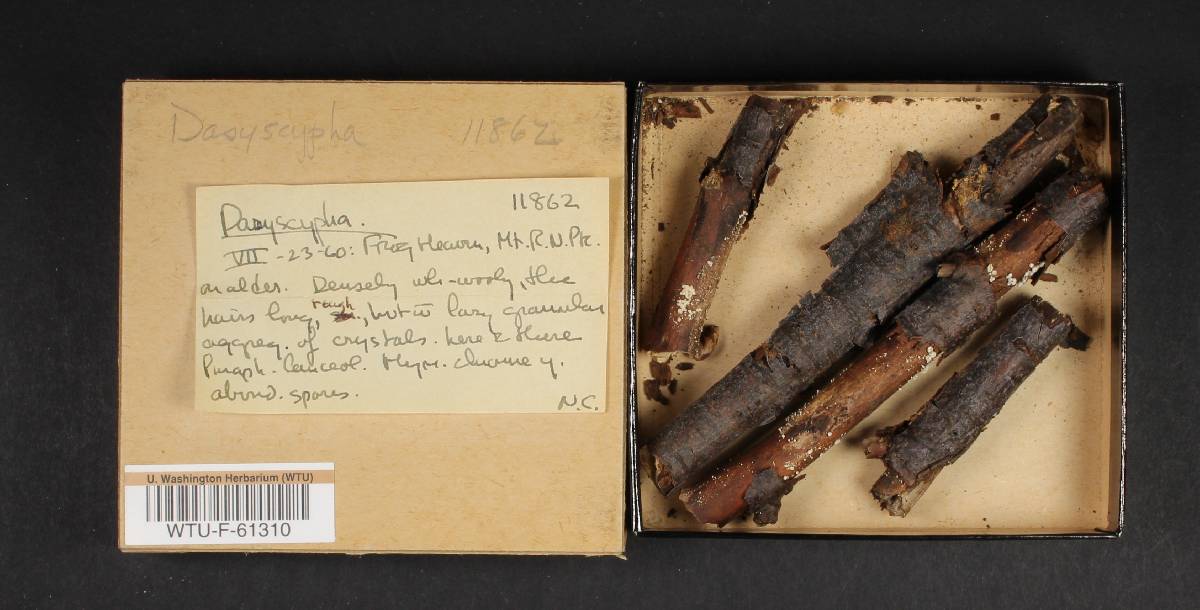 Dasyscypha 11862
11862
Dasyscypha.
VII-23-60: Frog Heaven, Mt. R. N. Pk.
on alder. Densely wh-wooly, the
hairs long, rough, but w lazy granular
aggreg. of crystals here & there
Paraph. lanceol. Hym. chrome y.
abund. spores.
N.C.
U. Washington Herbarium (WTU)
WTU-F-61310